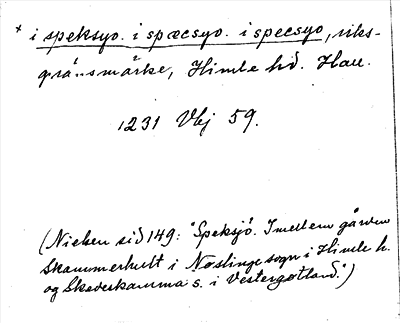 × i speksyo. i spæcsyo. i specsyo, riks-
gränsmärke, Himle hd. Hall.
1231 Vbj 59.
(Nielsen sid 149: "Speksjö. Imellem gården
Skammerhult i Nøslinge sogn i Himle h.
og Skederkamma s. i Vestergøtland.")